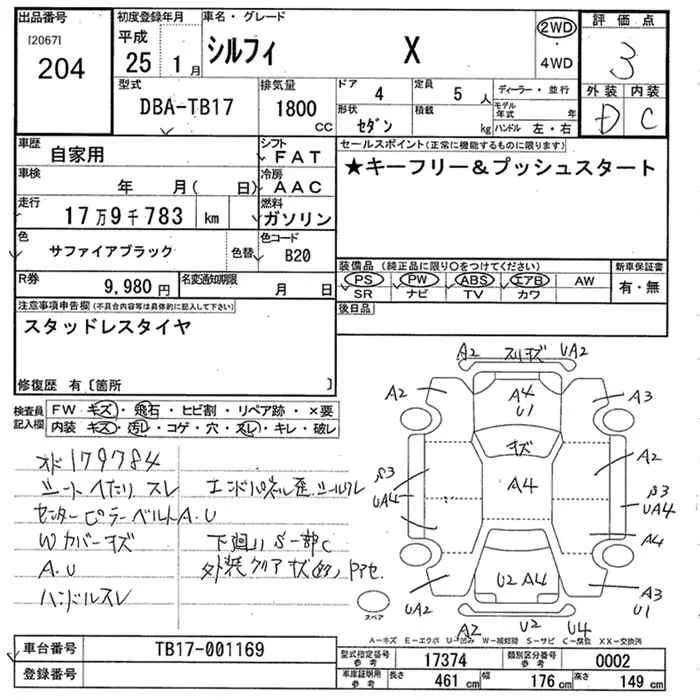 出品番号
[2067]
204
初度登録年月
平成
25年 1月
車名・グレード
シルフィ X
2WD
・
4WD
評価点
3
外装 内装
D C
型式
DBA-TB17
排気量
1800
CC
ドア 4
定員 5人
形状 セダン
積載 kg
ディーラー・並行
モデル年式 年
ハンドル 左・右
車歴
自家用
シフト
FAT
車検
年 月( 日)
冷房
AAC
走行
17万9千783 km
燃料
ガソリン
色
サファイアブラック
色替
色コード
B20
R券
9,980円
名変通知期限
月 日
セールスポイント(正常に機能するものに限ります)
★キーフリー&プッシュスタート
装備品(純正品に限り○をつけてください)
PS PW ABS エアB AW
SR ナビ TV カワ
新車保証書
有・無
後日品
注意事項申告欄(不具合内容等は具体的に記入して下さい)
スタッドレスタイヤ
修復歴 有〔箇所 〕
検査員
記入欄
FW キズ・飛石・ヒビ割・リペア跡・×要
内装 キズ・汚レ・コゲ・穴・スレ・キレ・破レ
オド179784
シートヘたり スレ
センターピラーベルトA.U
Wカバーキズ
A.U
ハンドルスレ
エンドパネル歪 シールワレ
下廻りS一部C
外装クリア キズ
A2 スリキズ UA2
A2
A4
U1
A3
キズ
A2
S3
UA4
A4
S3
UA4
A4
UA2
U2 A4
A3
U1
A2 U2 U4
スペア
A-キズ E-エクボ U-凹み W-補修跡 S-サビ C-腐蝕 XX-交換済
車台番号
TB17-001169
登録番号
型式指定番号
参考
17374
類別区分番号
参考
0002
車庫証明用
参考
長さ 461 cm
幅 176 cm
高さ 149 cm